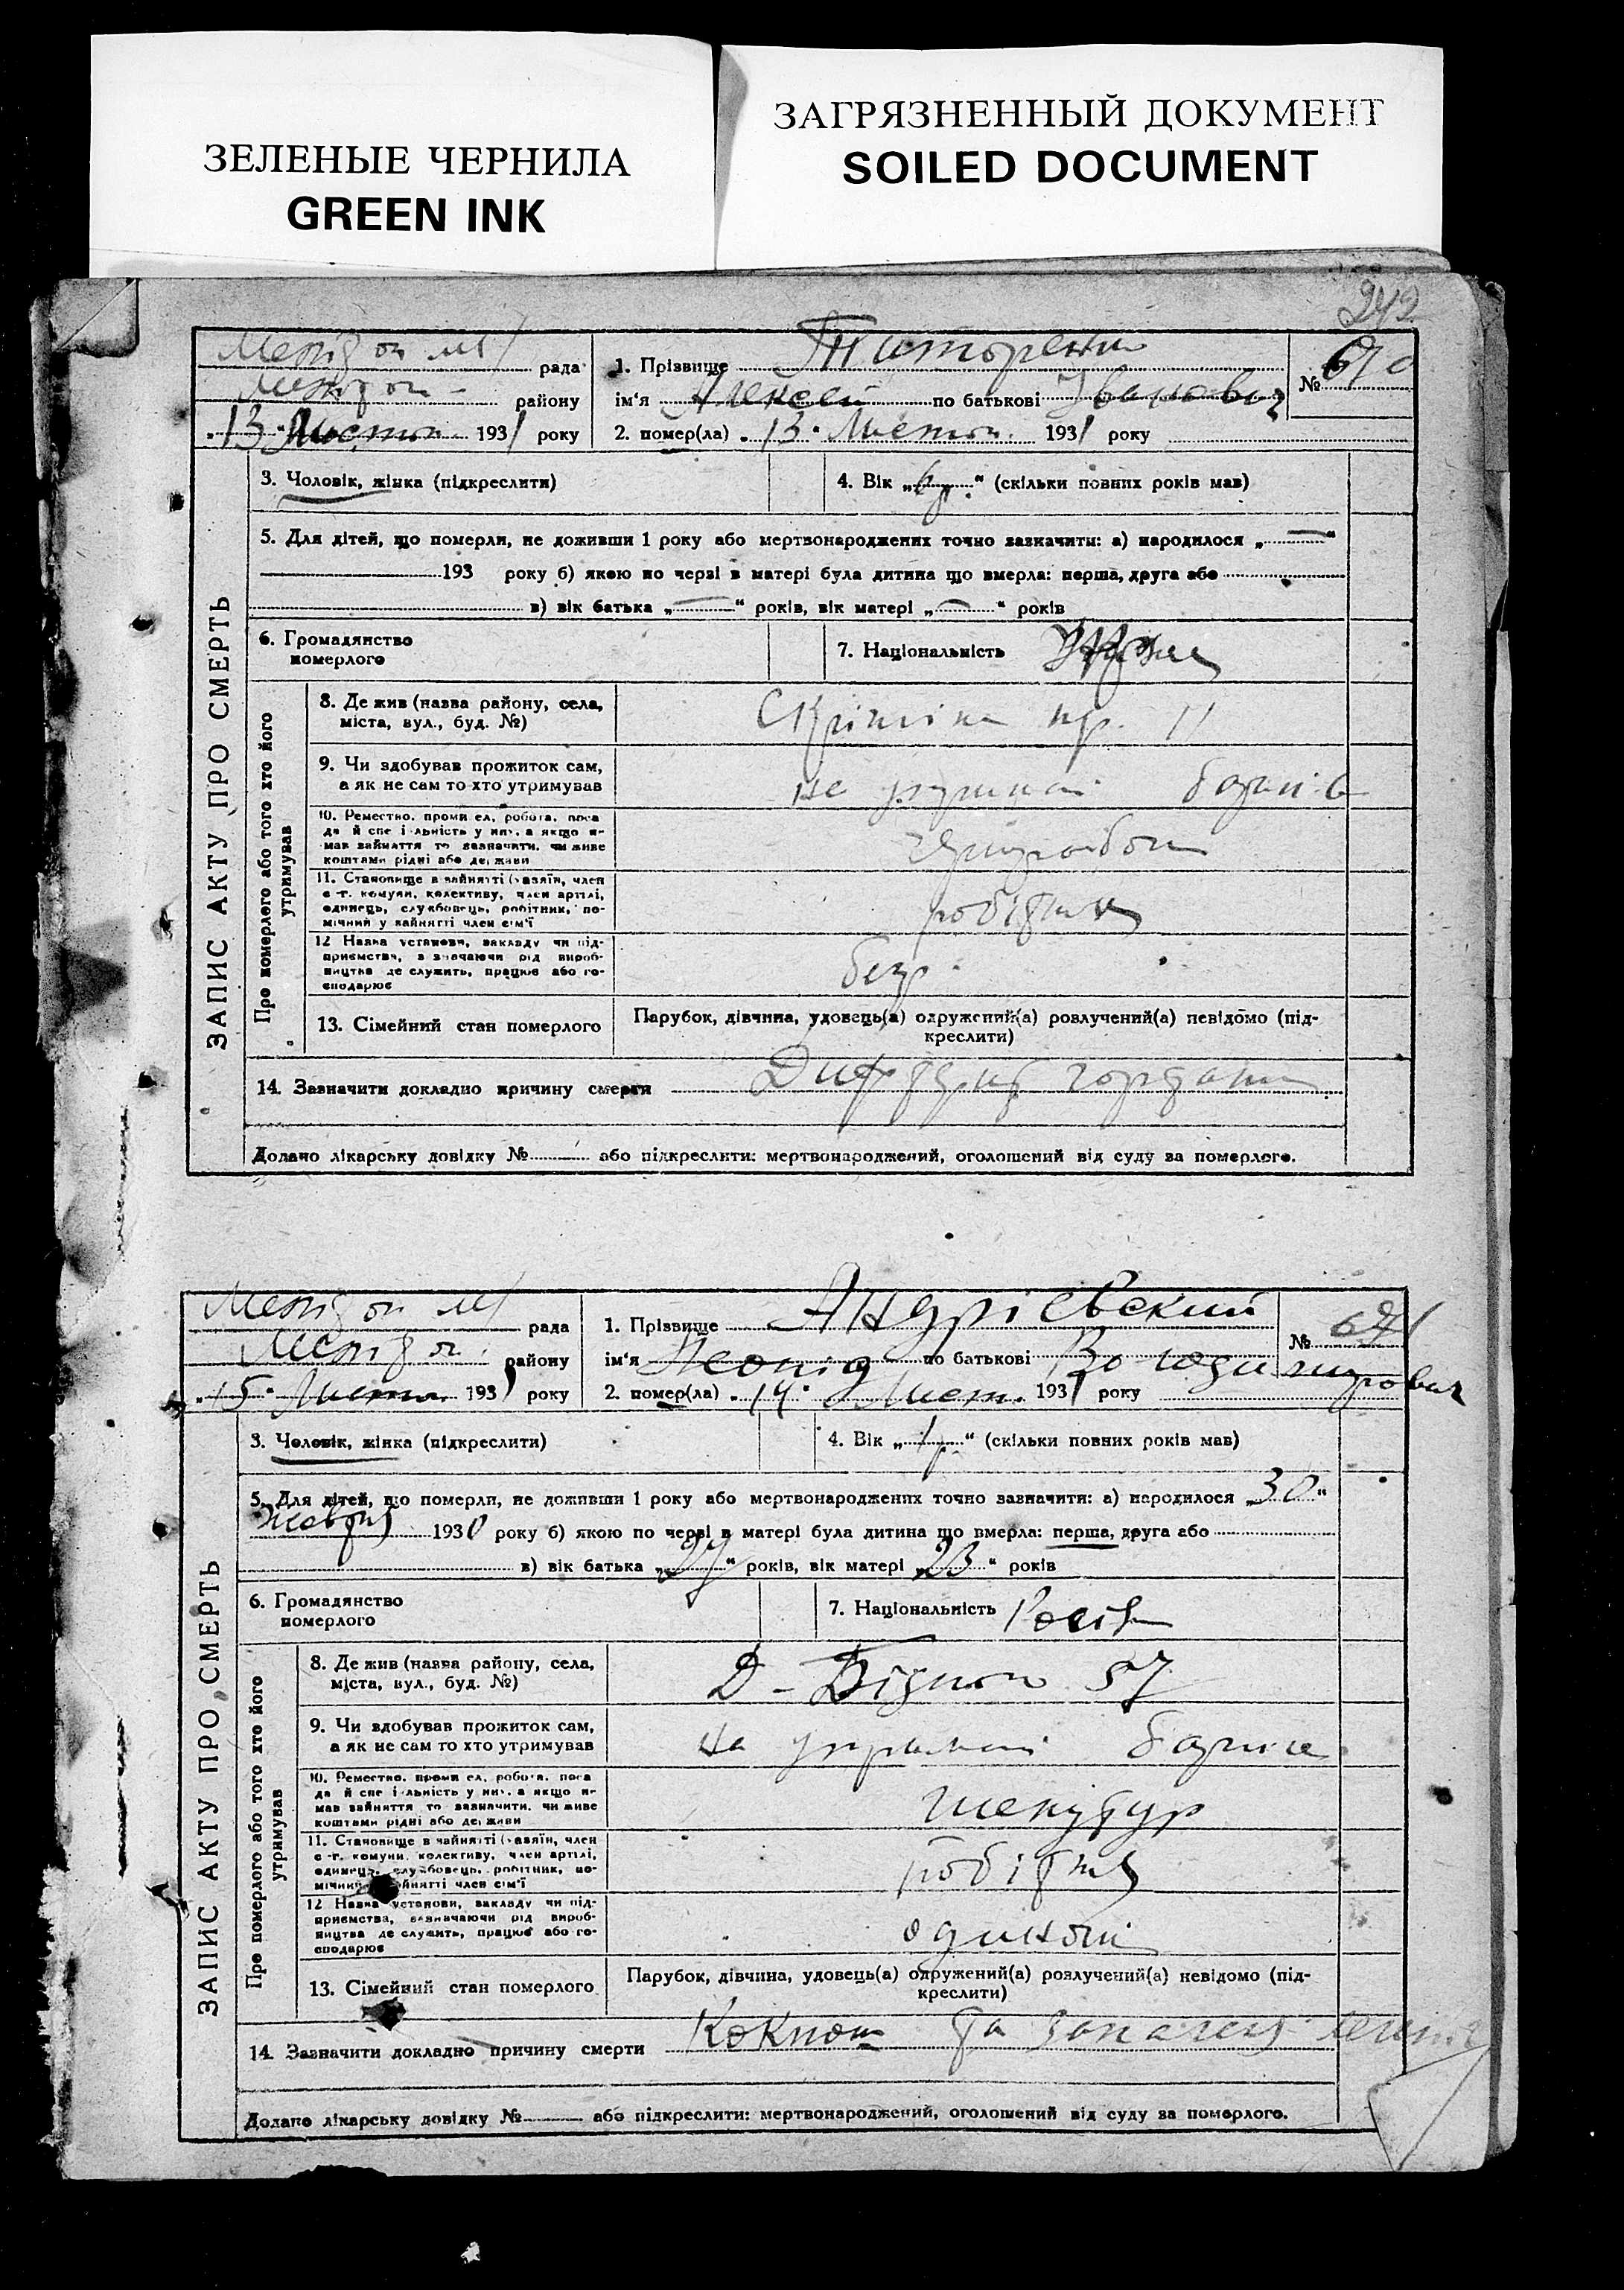 ЗЕЛЕНЫЕ ЧЕРНИЛА
GREEN INK
ЗАГРЯЗНЕННЫЙ ДОКУМЕНТ
SOILED DOCUMENT
242
рада
району
"13" Листоп 1931 року
1. Прізвище Титоренко
ім'я Алексей по батькові Іванович
2. помер(ла) "13" Листоп. 1931 року
№ 670
ЗАПИС АКТУ ПРО СМЕРТЬ
3. Чоловік, жінка (підкреслити)
4. Вік „6 р.“ (скільки повних років мав)
5. Для дітей, що померли, не доживши 1 року або мертвонароджених точно зазначити: а) народилося „—“
193 року б) якою по черзі в матері була дитина що вмерла: перша, друга або
в) вік батька „—“ років, вік матері „—“ років
6. Громадянство
померлого
7. Національність
Про померлого або того хто його
утримував
8. Де жив (назва району, села,
міста, вул., буд. №)
11
9. Чи здобував прожиток сам,
а як не сам то хто утримував
10. Ремество, промисел, робота, поса
да й спеціальність у них, а якщо не
мав зайняття то зазначити, чи живе
коштами рідні або держави
чорнороб
11. Становище в зайнятті (хазяїн, член
с.-г. комуни, колективу, член артілі,
одинець, службовець, робітник, по-
мічний у зайнятті член сім'ї
робітник
12 Назва установи, закладу чи під-
приємства, зазначаючи рід вироб-
ництва де служить, працює або го-
сподарює
безр.
13. Сімейний стан померлого
Парубок, дівчина, удовець(а) одружений(а) розлучений(а) невідомо (під-
креслити)
14. Зазначити докладно причину смерти Дифтерит гортани
Додано лікарську довідку № або підкреслити: мертвонароджений, оголошений від суду за померлого.
рада
району
"15" Листоп 1931 року
1. Прізвище Андріевский
ім'я Леонід по батькові Володимирович
2. помер(ла) "14" Лист. 1931 року
№ 671
ЗАПИС АКТУ ПРО СМЕРТЬ
3. Чоловік, жінка (підкреслити)
4. Вік „1 р.“ (скільки повних років мав)
5. Для дітей, що померли, не доживши 1 року або мертвонароджених точно зазначити: а) народилося „30“
Жовтня 1930 року б) якою по черзі в матері була дитина що вмерла: перша, друга або
в) вік батька „27“ років, вік матері „23“ років
6. Громадянство
померлого
7. Національність Росія
Про померлого або того хто його
утримував
8. Де жив (назва району, села,
міста, вул., буд. №)
Д-Бідного 57
9. Чи здобував прожиток сам,
а як не сам то хто утримував
на утриманні батька
10. Ремество, промисел, робота, поса
да й спеціальність у них, а якщо не
мав зайняття то зазначити, чи живе
коштами рідні або держави
штукатур
11. Становище в зайнятті (хазяїн, член
с.-г. комуни, колективу, член артілі,
одинець, службовець, робітник, по-
мічний у зайнятті член сім'ї
робітник
12 Назва установи, закладу чи під-
приємства, зазначаючи рід вироб-
ництва де служить, працює або го-
сподарює
13. Сімейний стан померлого
Парубок, дівчина, удовець(а) одружений(а) розлучений(а) невідомо (під-
креслити)
14. Зазначити докладно причину смерти Коклюш та запаления легенів
Додано лікарську довідку № або підкреслити: мертвонароджений, оголошений від суду за померлого.